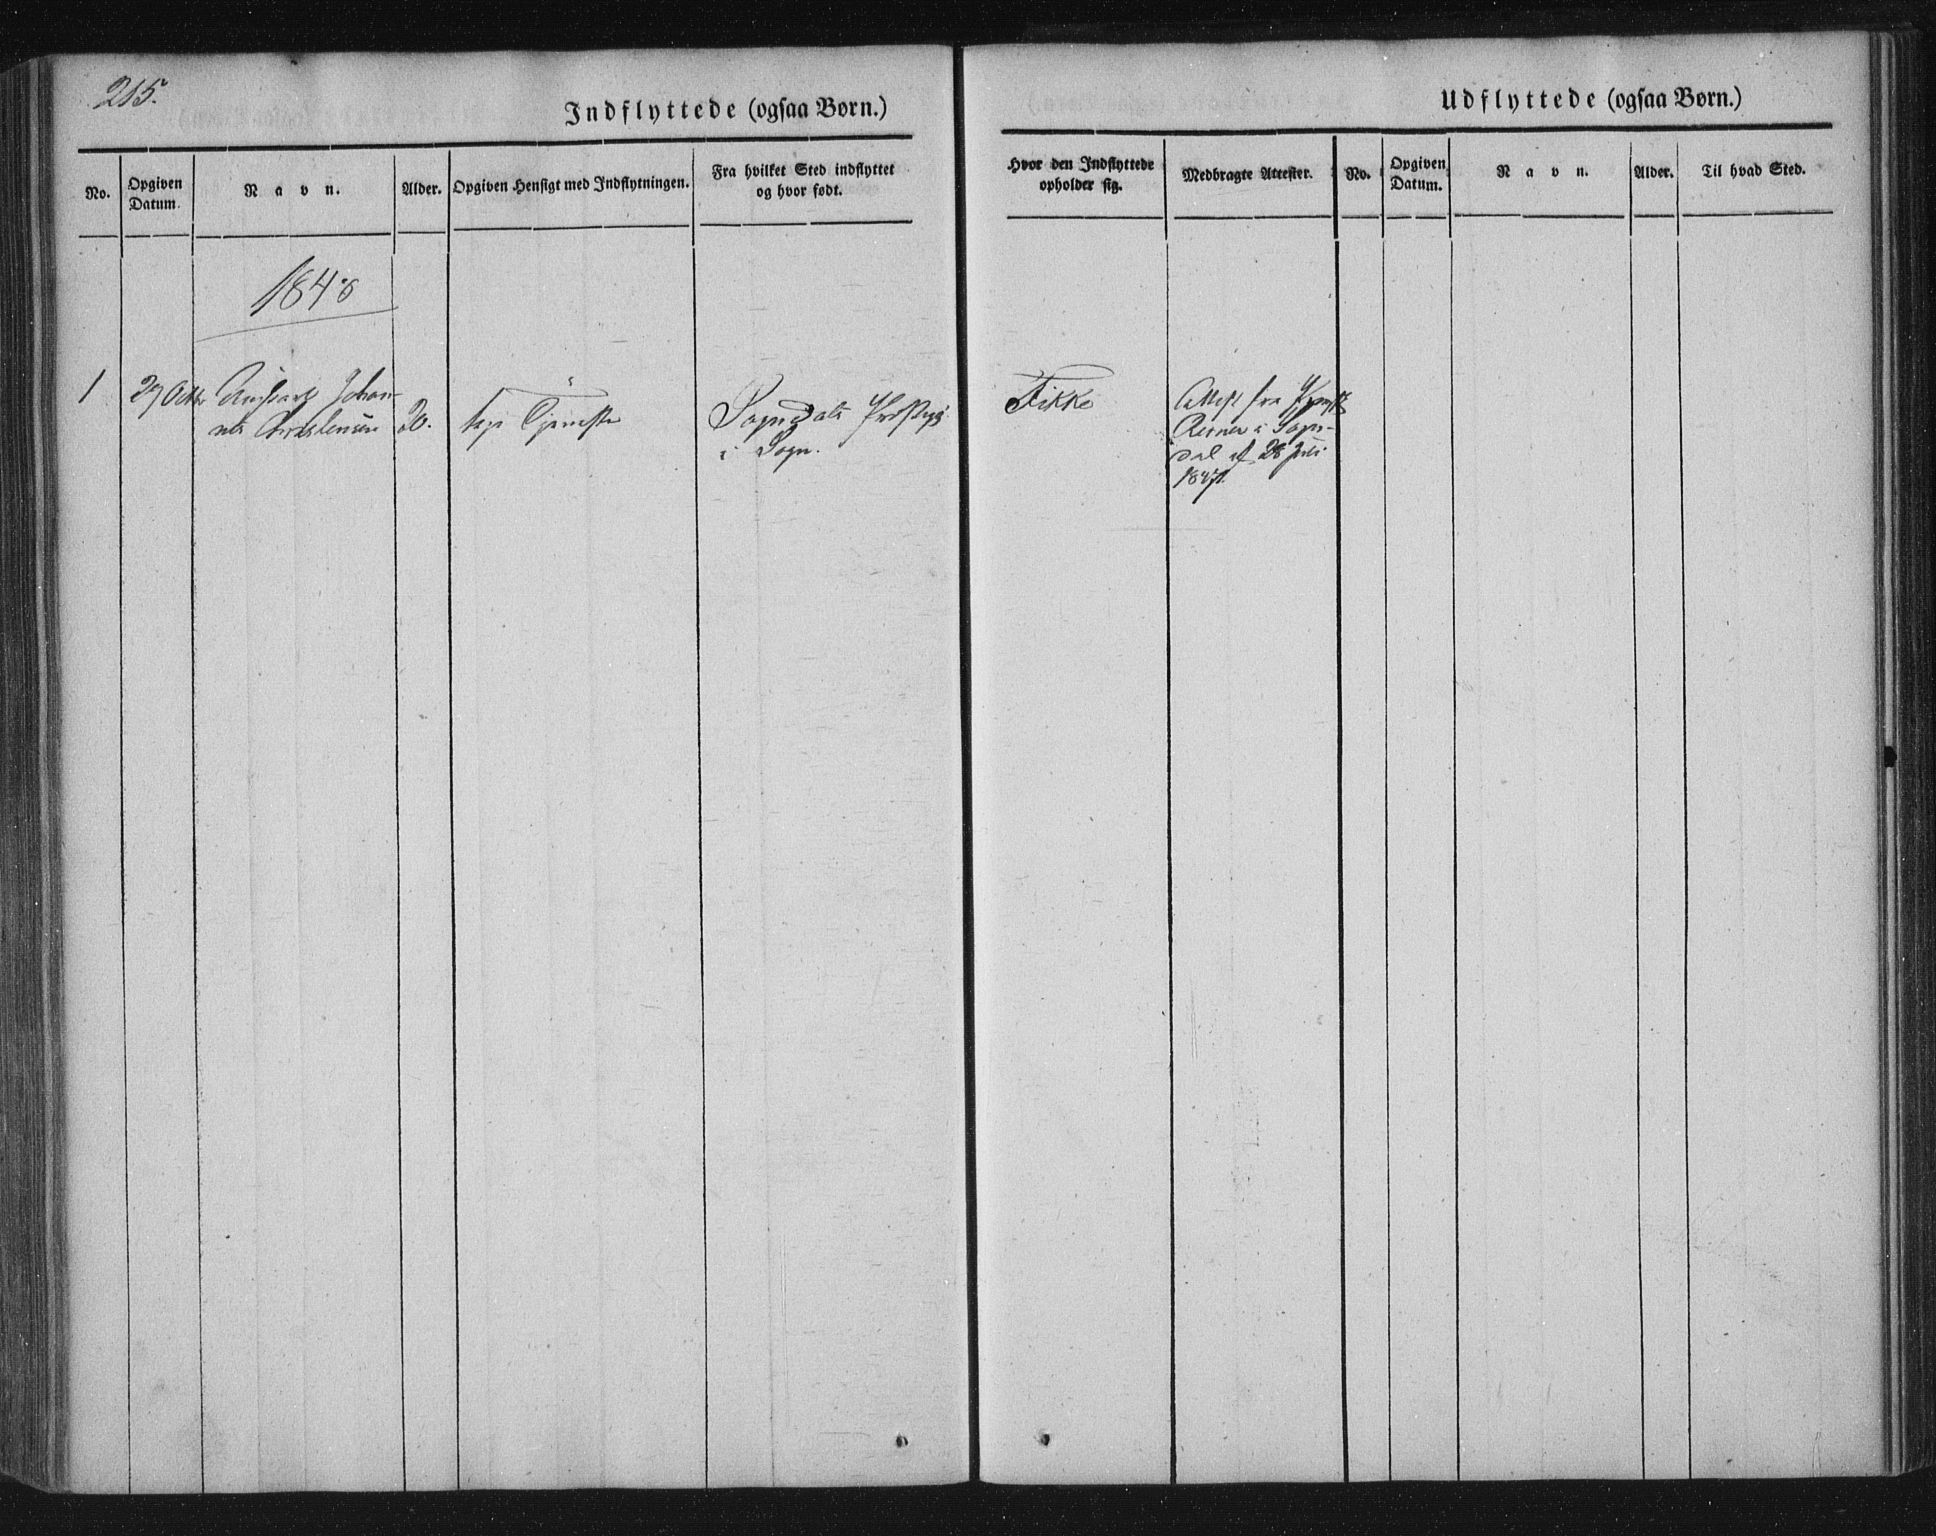 215.
Indflyttede (ogsaa Børn.)
No.
Opgiven Datum.
Navn.
Alder.
Opgiven Hensigt med Indflytningen.
Fra hvilket Sted indflyttet
og hvor født.
1848
1
29 Octbr
Johan-
20.
tage Tjeneste
Sogndals Præstegj
i Sogn.
Udflyttede (ogsaa Børn.)
Hvor den Indflyttede
opholder sig.
Medbragte Attester.
No.
Opgiven
Datum.
Navn.
Alder.
Til hvad Sted.
Fikke
Attest fra
i Sogn-
dal af 28 Juli
1847.